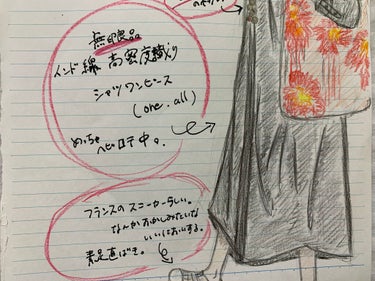 無印良品
インド綿 高密度織り
シャツワンピース
(one. all)
めっちゃ
ヘビロテ中。
フランスの スニーカーらしい。
なんか おかしみたいな
いいにおいする。
素足直ばき。